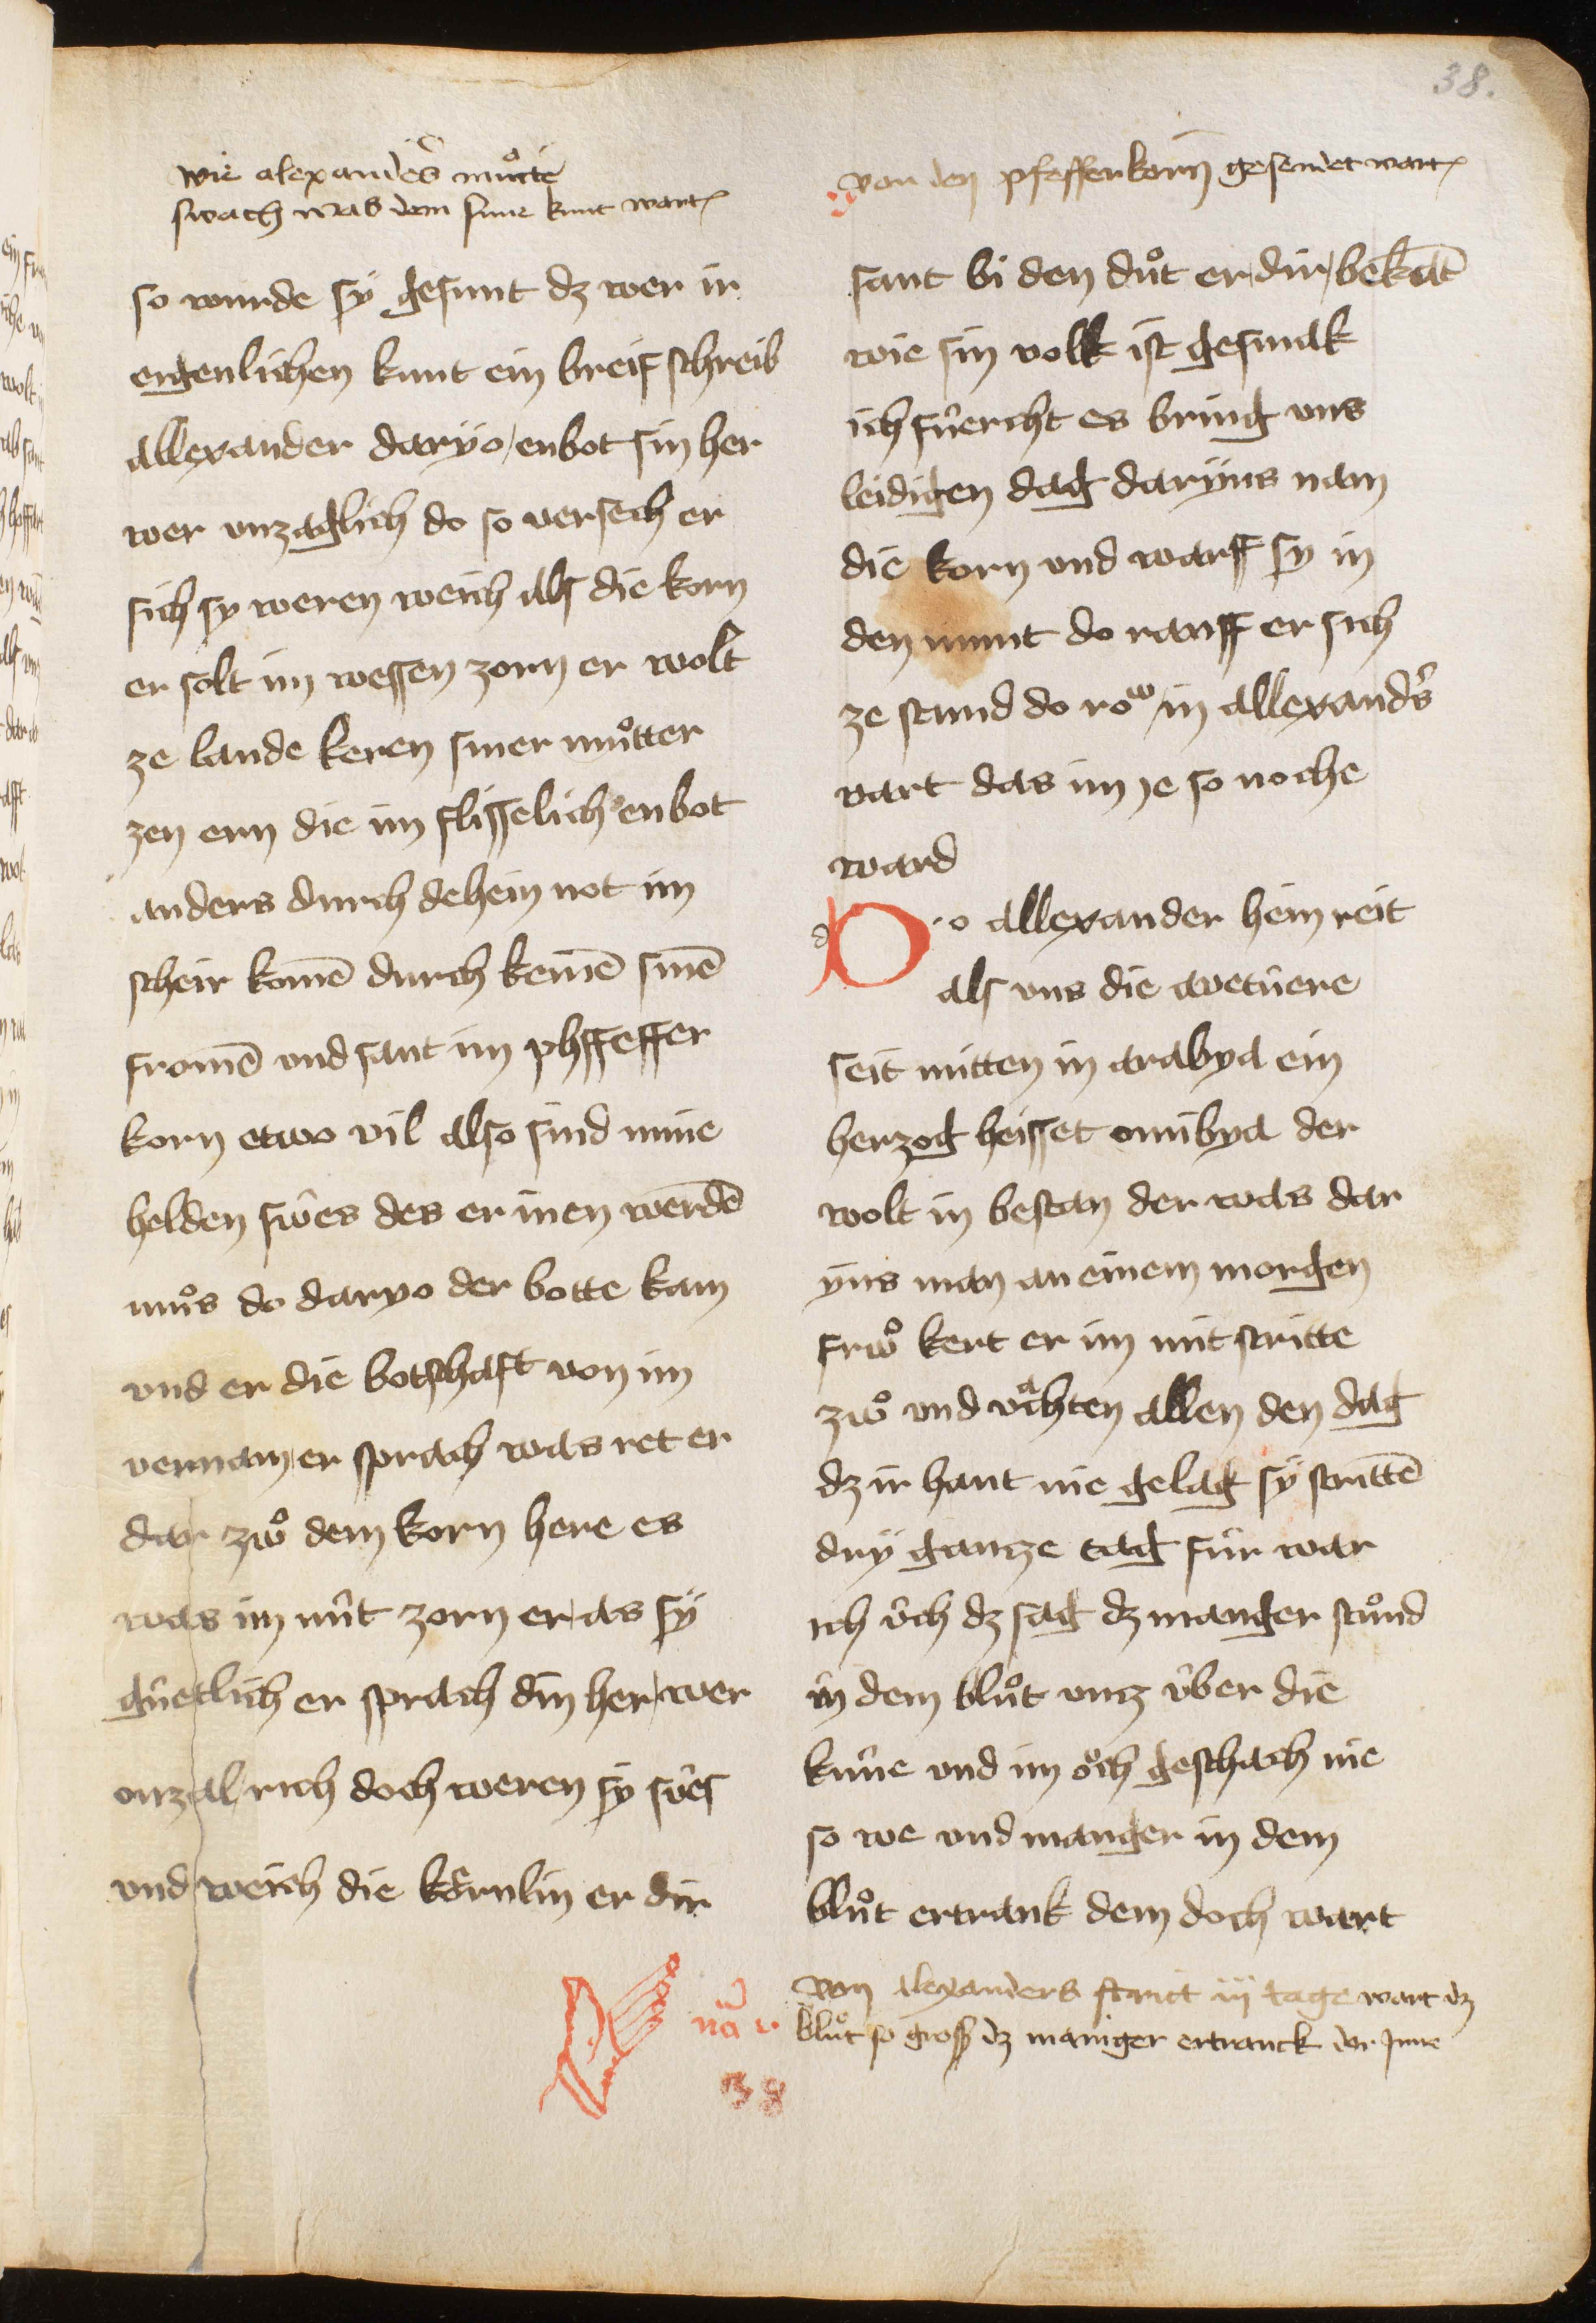 38.
wie alexanders můtte
swach was dem sune kunt wart
so wurde sÿ gesunt dz wer ir
eigenlichen kunt ein breif schreib
allexander darÿo enbot sin her
wer vnzaglich do so versech er
sich sy weren weich als die korn
er solt im wessen zorn er wolt
ze lande keren siner můtter
zen ern die im flisselich enbot
anders durch dehein not im
scheir komē durch keinē sinē
fromē vnd sant im phffeffer
korn etwo vil also sind mine
helden swes des er inen werdē
můs do daryo der botte kam
vnd er die botschaft von im
vernam er sprach was ret er
dar zwͦ dem korn here es
was im nŭt zorn er as sÿ
gŭetlich er sprach din her wer
onzalrich doch weren sÿ swes
vnd weich die kôrnlin er dir
von den pfefferkorn gesendet wart
sant bi den důt er dir bekāt
wie sin volk ist gesmak
ich fŭercht es bring vns
leidigen dag darÿus nam
die korn vnd warff sy in
den munt do rauff er sich
ze stund do row in allexandˢ
vart das im ȷe so noche
ward
d Do allexander hein reit
als vns die avetŭere
seit mitten in arabya ein
herzog heisset omibya der
wolt in bestan der was dar
ÿus man an einem morgen
frwͦ kert er im mit stritte
zwͦ vnd vahten allen den dag
dz ir hant nie gelag sÿ strittē
drÿ gancze tag fŭr war
ich ŭch dz sag dz manger stůnd
in dem blůt vncz ŭber die
knŭe vnd im ŏch geschach nie
so we vnd manger in dem
blůt ertrank dem doch wart
von alexanders strict iij tage wart dz
blůt so gross dz maniger ertranck dar jnne
nā v
38